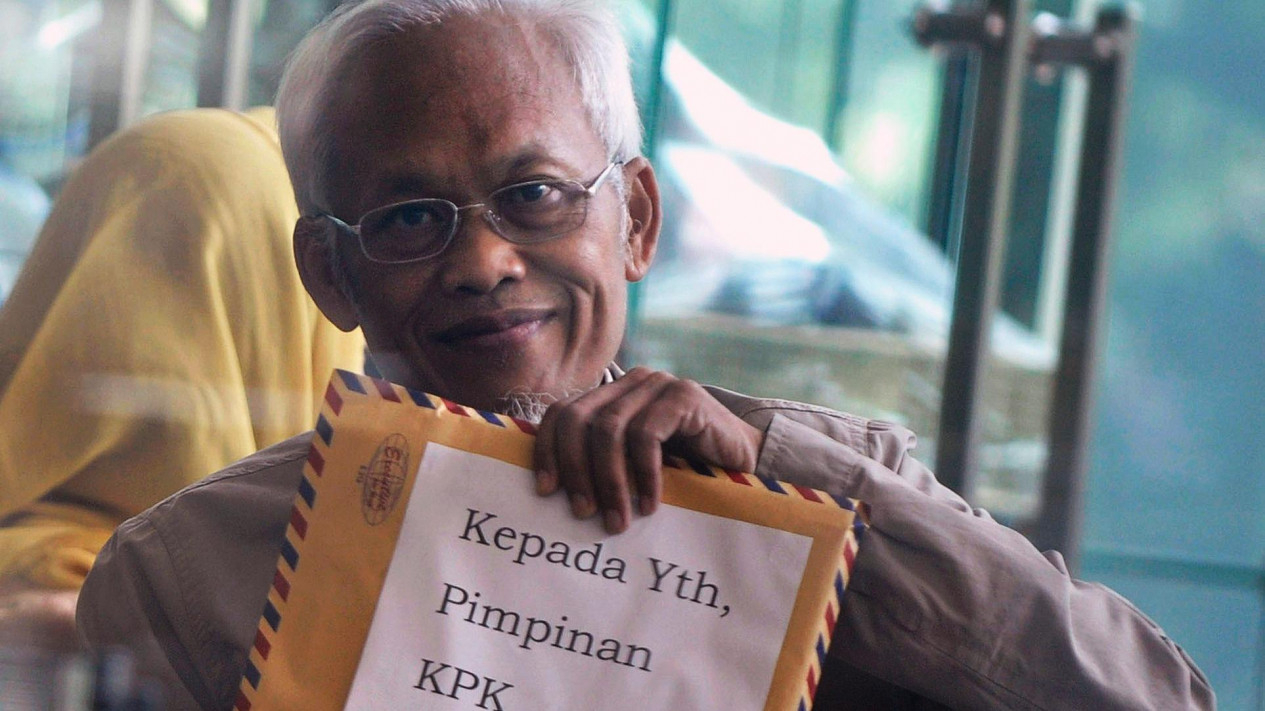 Kepada Yth,
Pimpinan
KPK